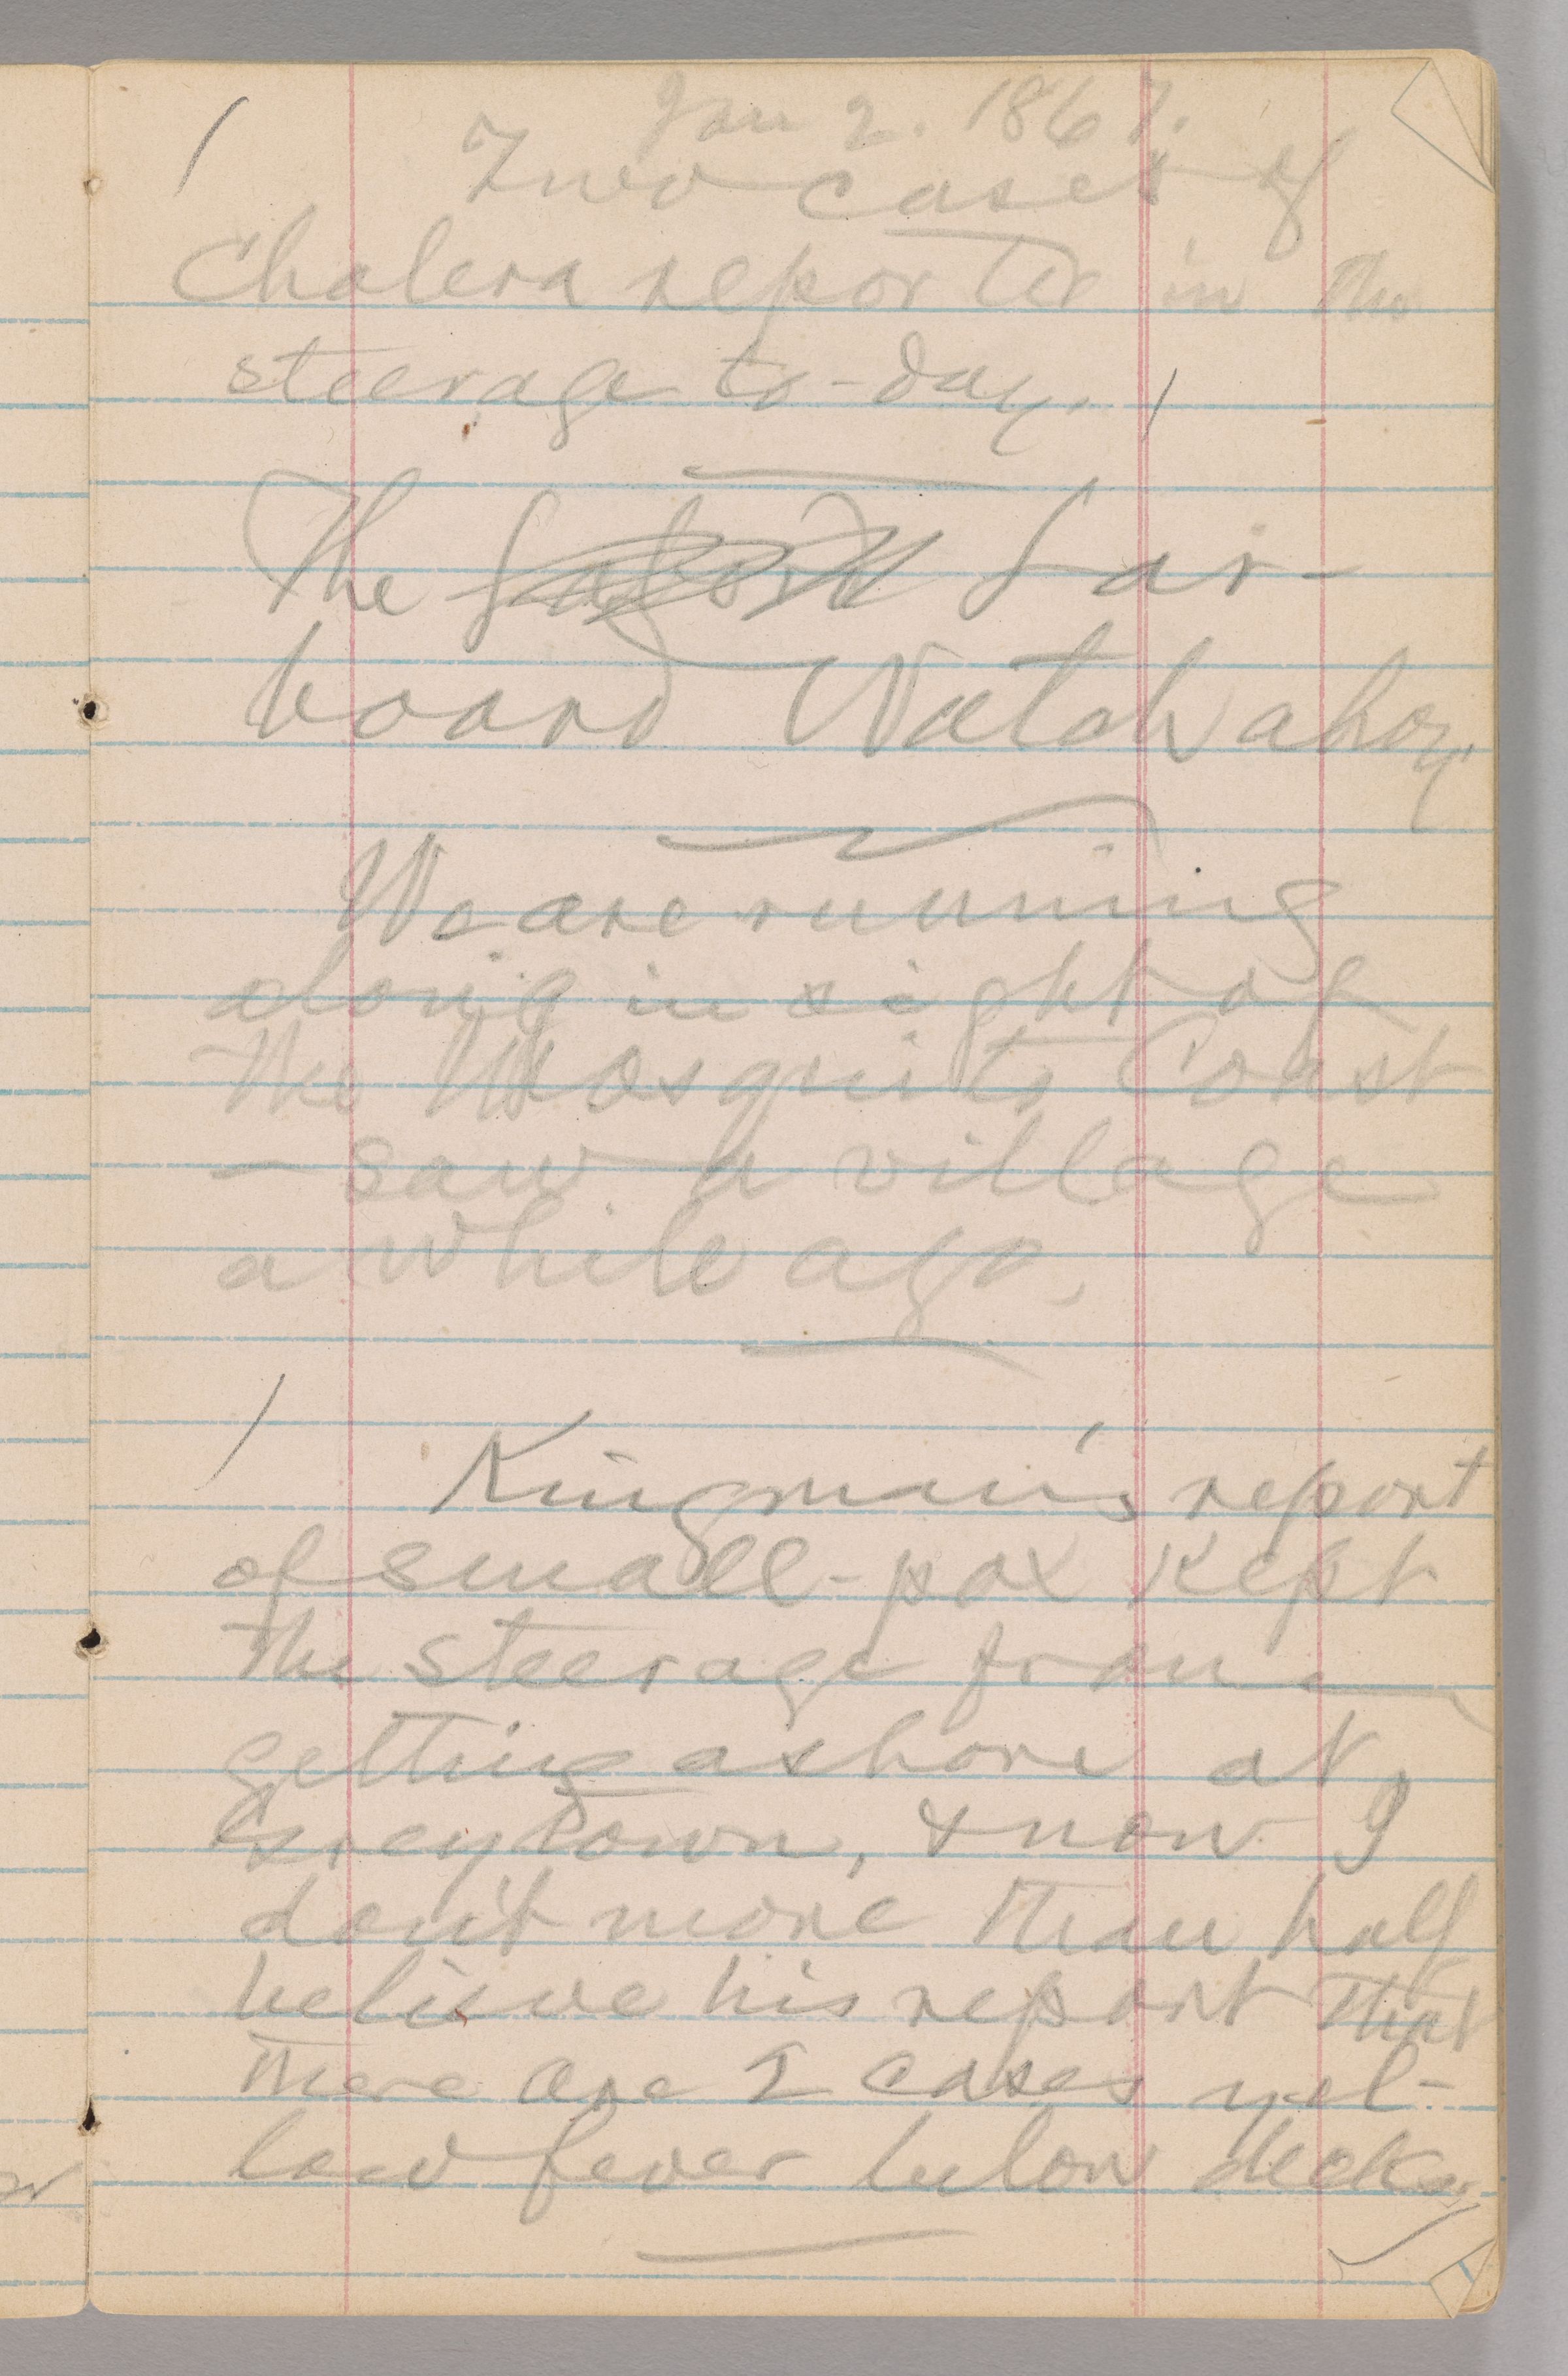 Jan 2. 1867.
Two cases of
Cholera reported in the
steerage to-day.
The Lar-
board Watch ahoy.
We are running
along in sight of
the Mosquito Coast
— saw a village
a while ago.
Kingman's report
of small-pox kept
the steerage from
getting ashore at
Greytown, & now I
don't more than half
believe his report that
there are 2 cases yel-
low fever below decks